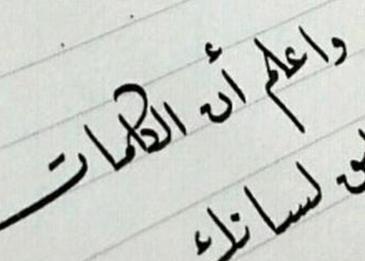 واعلم أن الكلمات
لسانك